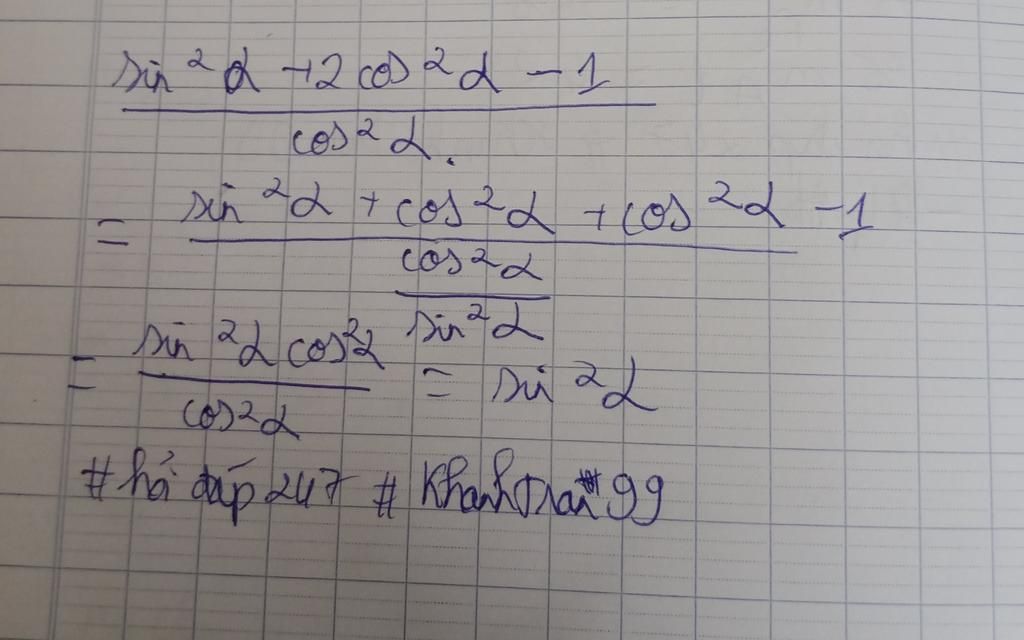 sin²α + 2cos²α - 1
cos²α.
= sin²α + cos²α + cos²α - 1
cos²α
sin²α
= sin²α cos²α
cos²α
= sin²α
# hỏi đáp 247 #
99